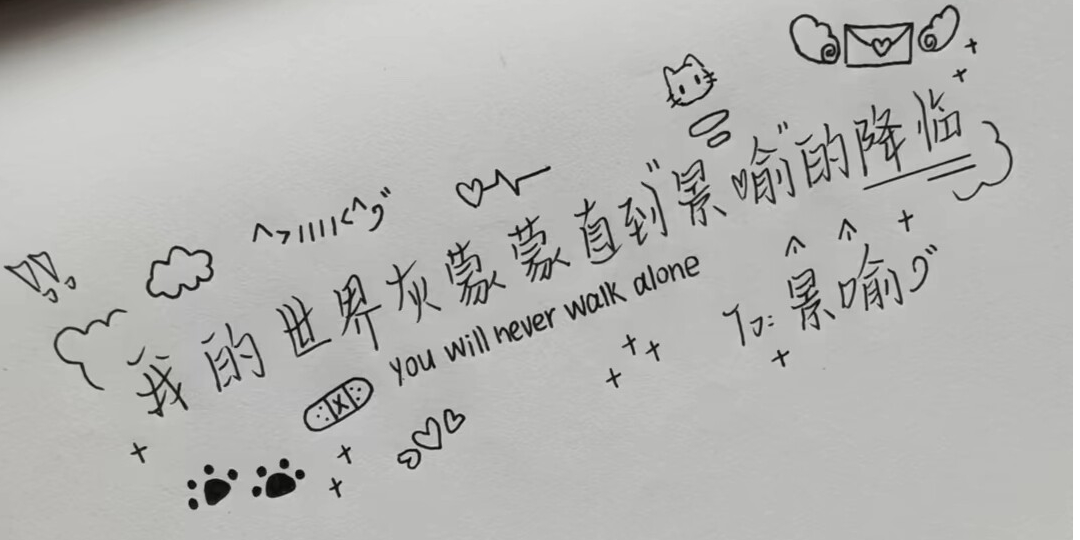 我的世界灰蒙蒙直到"景喻"的降临
you will never walk alone
To: 景喻